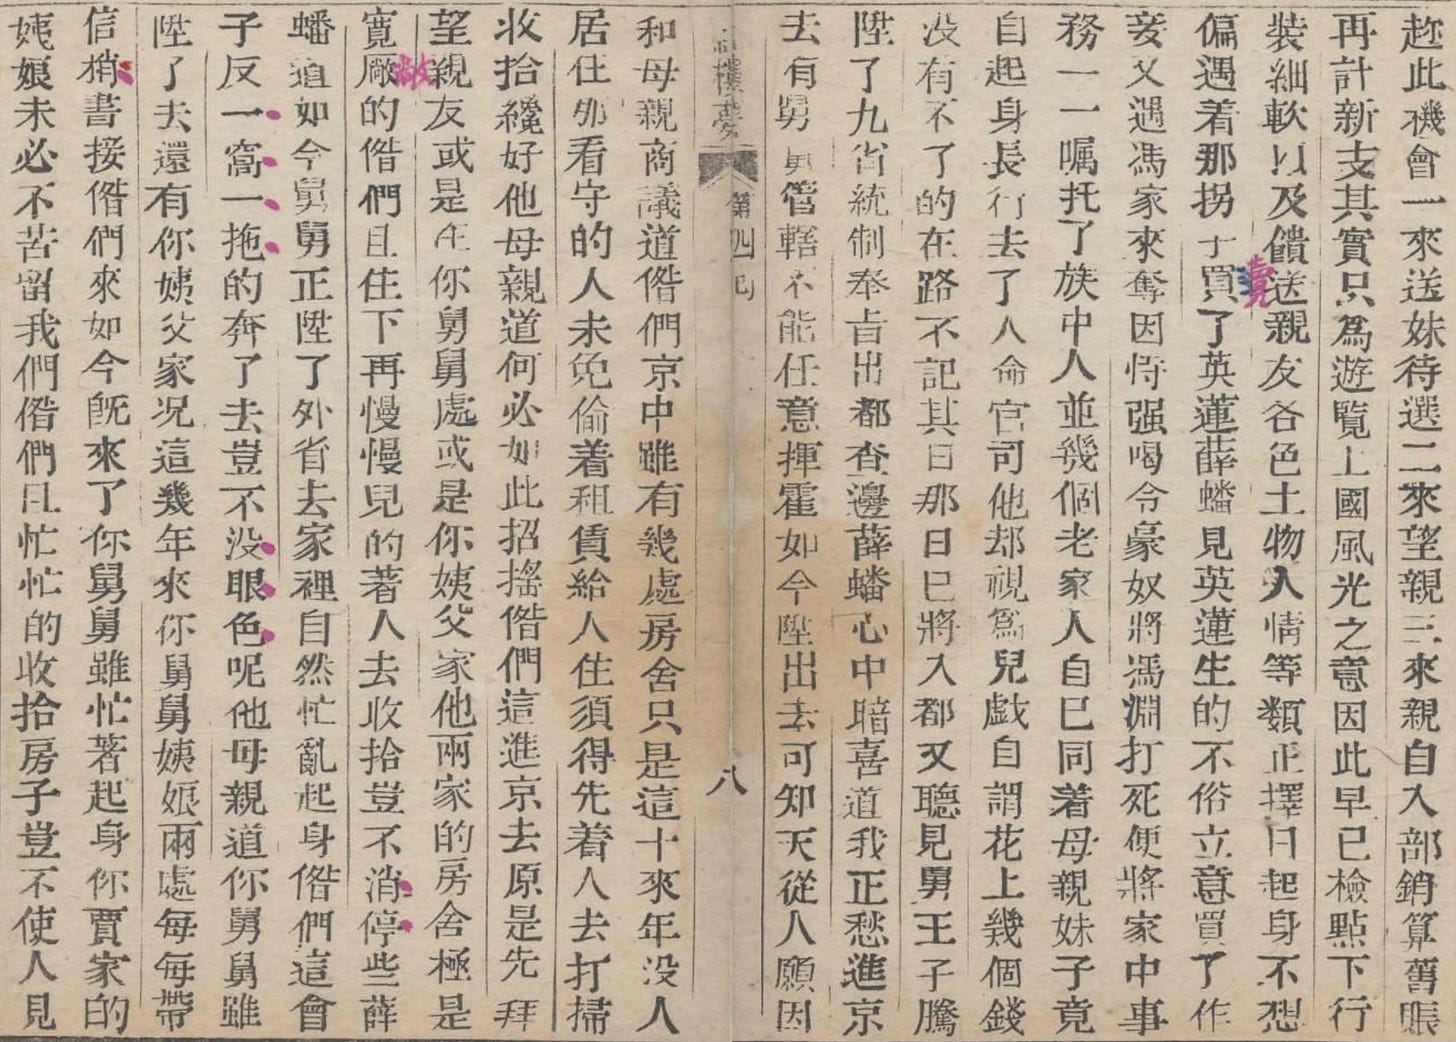 趂此機會一來送妹待選二來望親三來親自入部銷算舊賬
再計新支其實只爲遊覽上國風光之意因此早已檢點下行
裝細軟以及饋送親友各色土物人情等類正擇日起身不想
偏遇着那拐子買了英蓮薛蟠見英蓮生的不俗立意買了作
賣
妾又遇馮家來奪因恃强喝令豪奴將馮淵打死便將家中事
務一一嘱托了族中人並幾個老家人自已同着母親妹子竟
自起身長行去了人命官司他却視爲兒戯自謂花上幾個錢
没有不了的在路不記其日那日已將入都又聽見舅王子騰
陞了九省統制奉旨出都查邊薛蟠心中暗喜道我正愁進京
去有舅舅管轄不能任意揮霍如今陞出去可知天從人願因
紅樓夢 第四囘 八
和母親商議道偺們京中雖有幾處房舍只是這十來年没人
居住那看守的人未免偷着租賃給人住須得先着人去打掃
收拾纔好他母親道何必如此招搖偺們這進京去原是先拜
望親友或是在你舅舅處或是你姨父家他兩家的房舍極是
敞
寛厰的偺們且住下再慢慢兒的著人去收拾豈不消停些薛
蟠道如今舅舅正陞了外省去家裡自然忙亂起身偺們這會
子反一窩一拖的奔了去豈不没眼色呢他母親道你舅舅雖
陞了去還有你姨父家况這幾年來你舅舅姨娘兩處每每帶
信捎書接偺們來如今旣來了你舅舅雖忙著起身你賈家的
姨娘未必不苦留我們偺們且忙忙的收拾房子豈不使人見